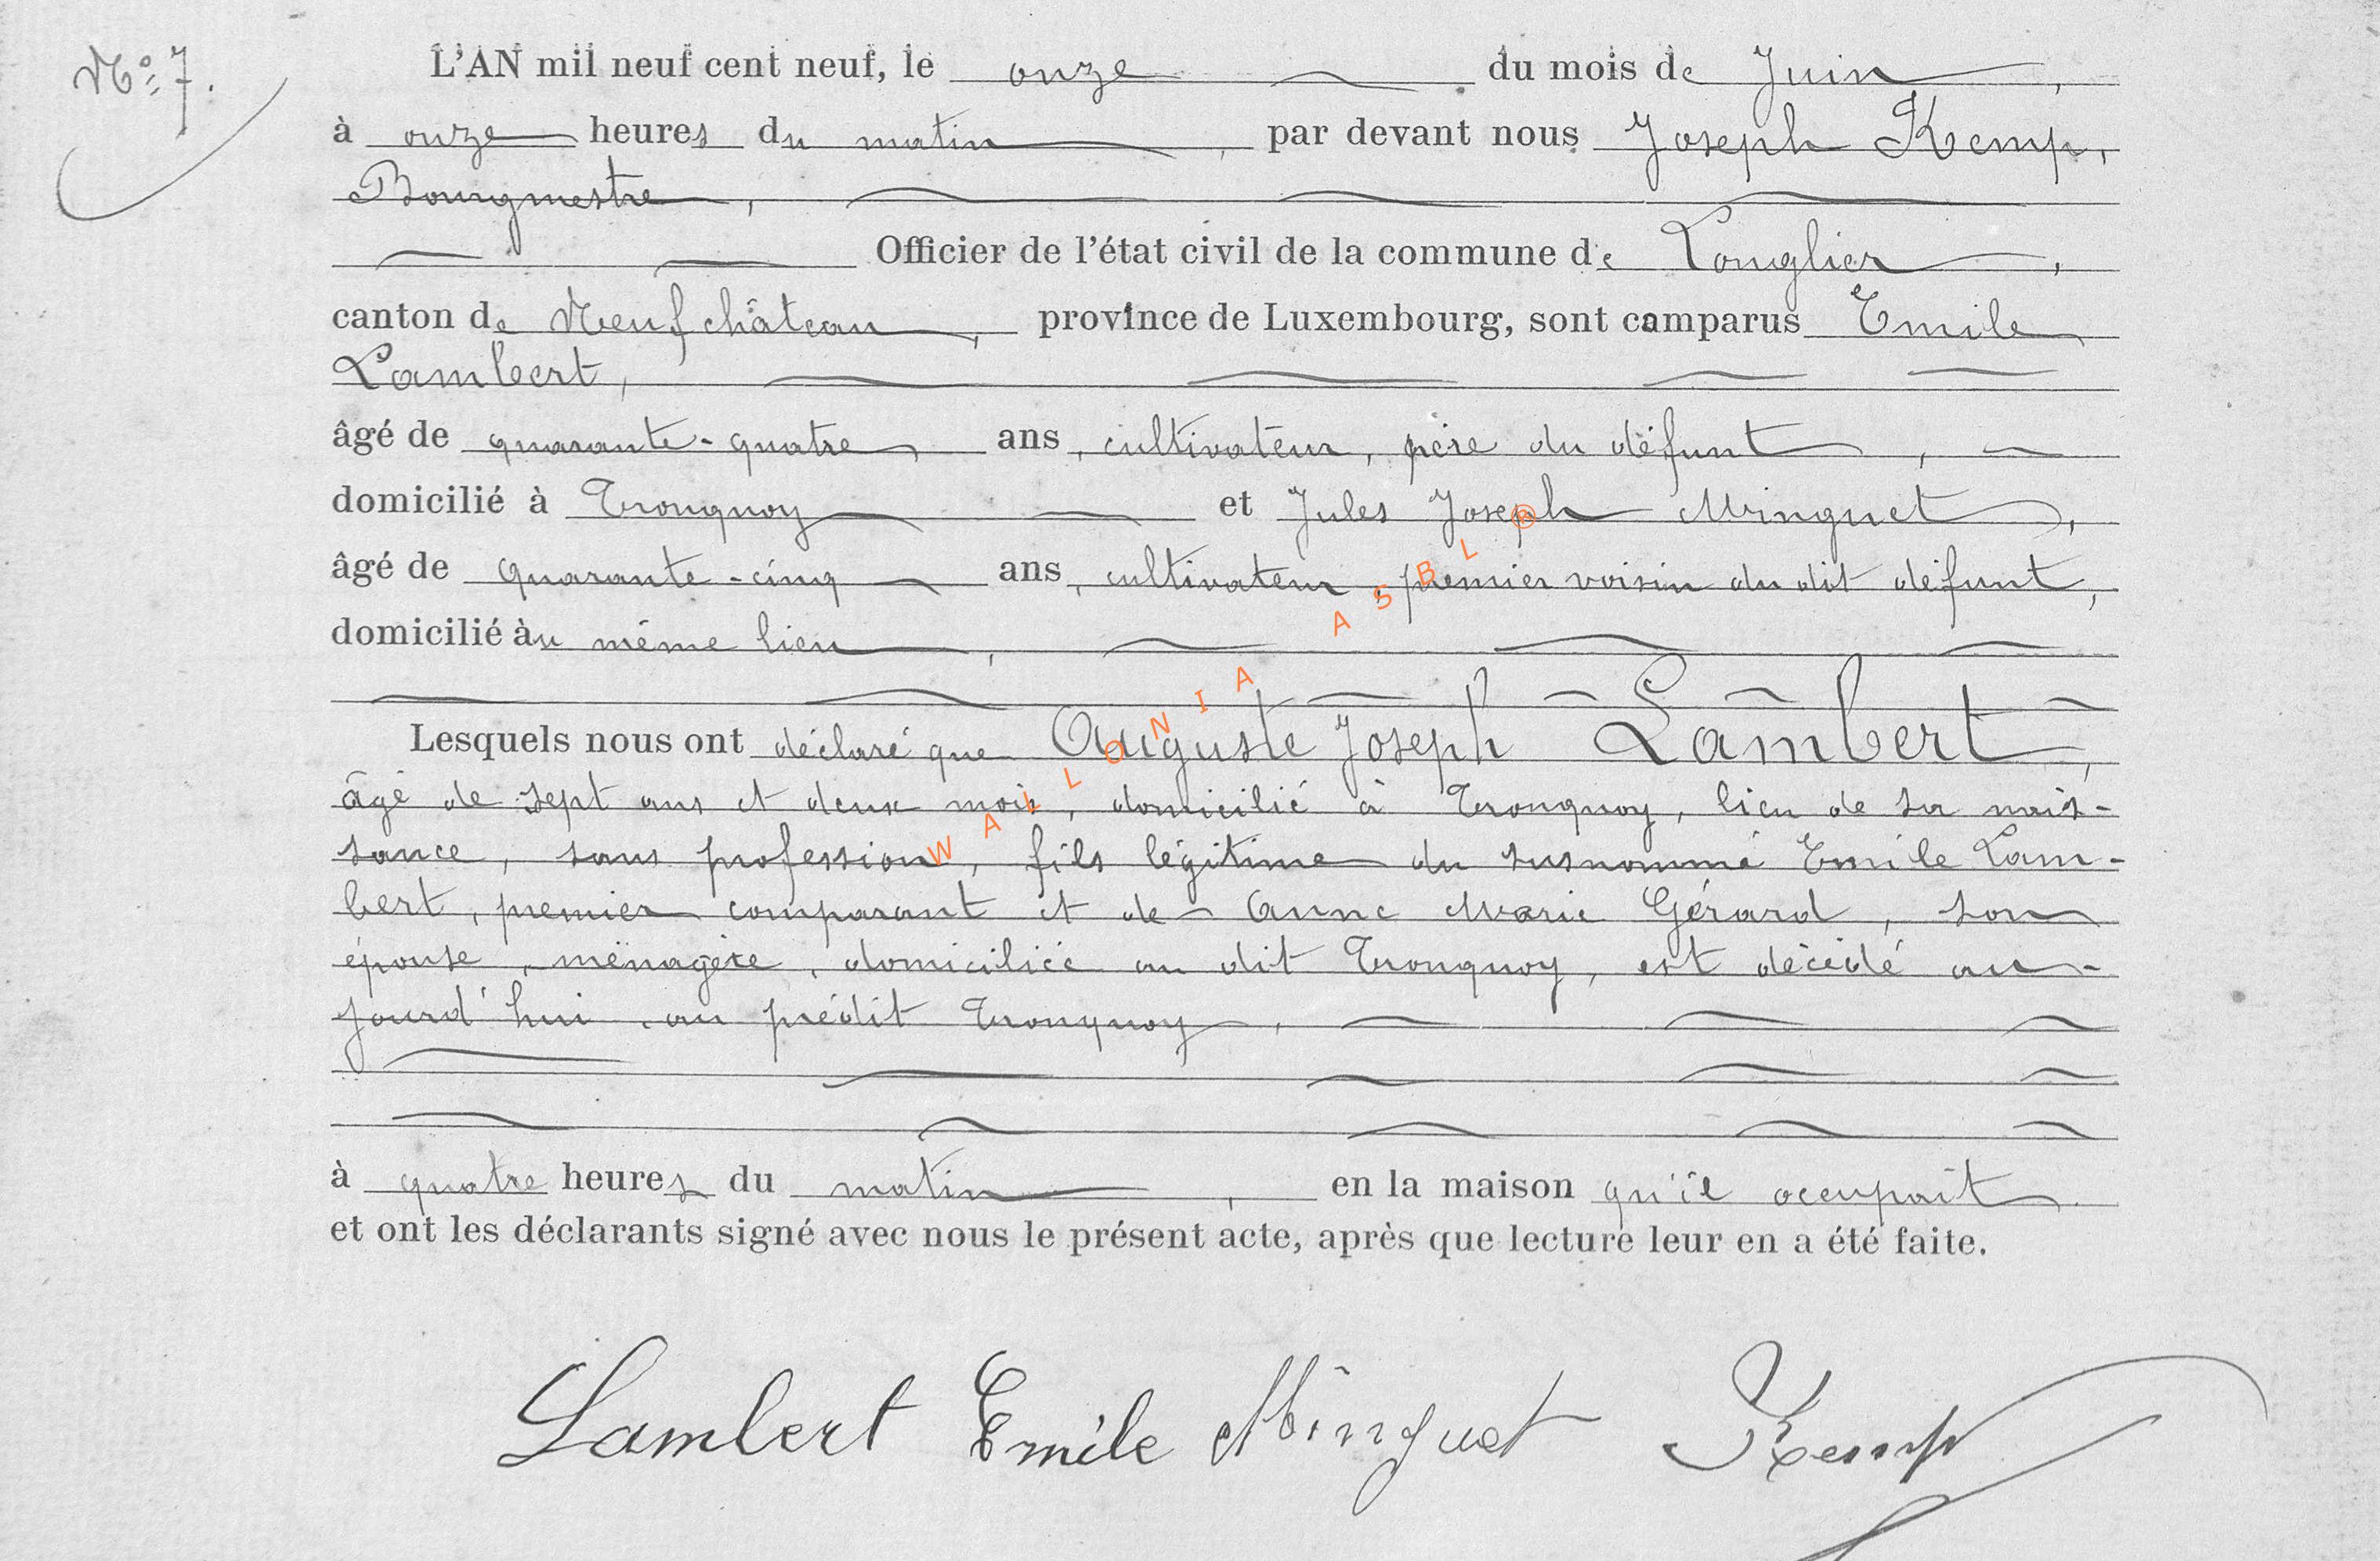 N° 7.
L'AN mil neuf cent neuf, le onze du mois de Juin,
à onze heures du matin, par devant nous Joseph Kemp,
Bourgmestre,
Officier de l'état civil de la commune de Longlier,
canton de Neufchâteau, province de Luxembourg, sont comparus Emile
Lambert,
âgé de quarante-quatre ans, cultivateur, père du défunt,
domicilié à Tronquoy et Jules Joseph Minguet,
âgé de quarante-cinq ans, cultivateur, premier voisin du dit défunt,
domicilié àu même lieu,
Lesquels nous ont déclaré que Auguste Joseph Lambert,
âgé de sept ans et deux mois, domicilié à Tronquoy, lieu de sa nais-
sance, sans profession, fils légitime du susnommé Emile Lam-
bert, premier comparant et de Anne Marie Gérard, son
épouse, ménagère, domiciliée au dit Tronquoy, est décédé au-
jourd'hui, au prédit Tronquoy,
à quatre heures du matin, en la maison qu'il occupait
et ont les déclarants signé avec nous le présent acte, après que lecture leur en a été faite.
Lambert Emile Minguet Kemp
WALLONIA ASBL ®